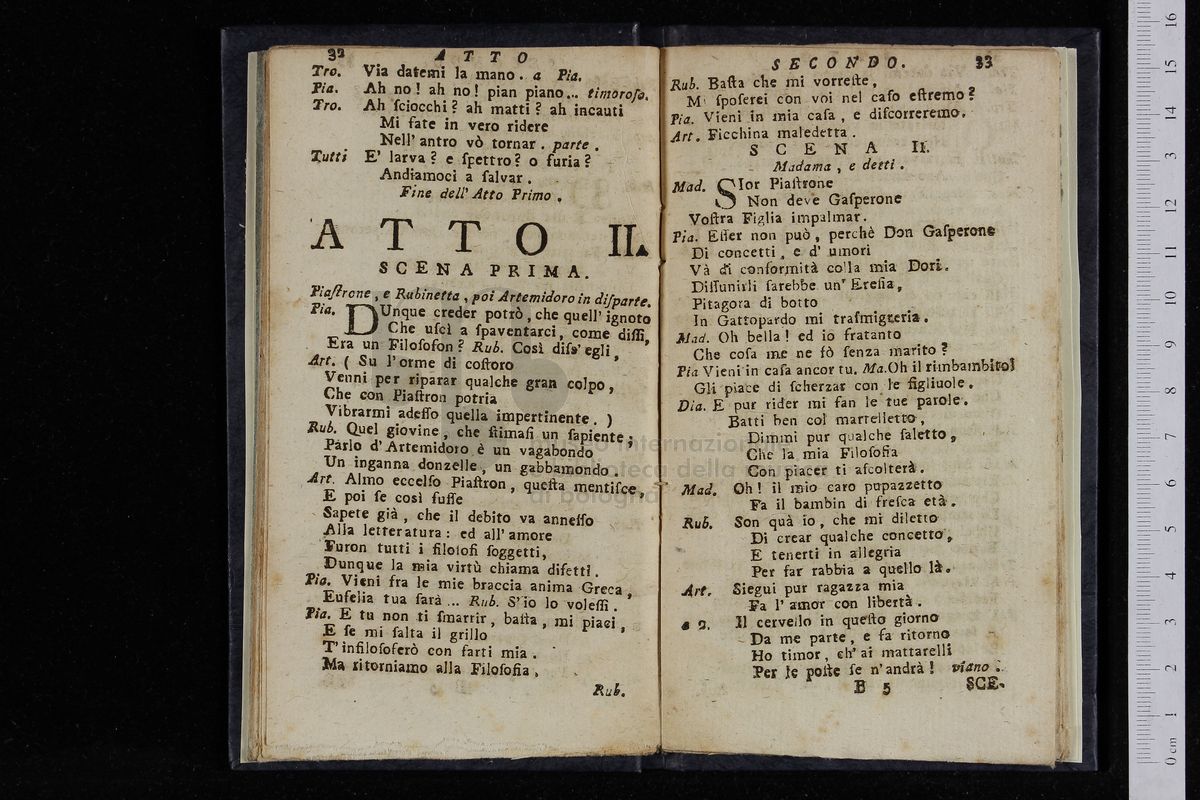 32 ATTO
Tro. Via datemi la mano. a Pia.
Pia. Ah no! ah no! pian piano... timoroso.
Tro. Ah ſciocchi? ah matti? ah incauti
Mi fate in vero ridere
Nell' antro vò tornar. parte.
Tutti E' larva? e ſpettro? o furia?
Andiamoci a ſalvar.
Fine dell' Atto Primo.
ATTO II.
SCENA PRIMA.
Piaſtrone, e Rubinetta, poi Artemidoro in diſparte.
Pia. DUnque creder potrò, che quell' ignoto
Che uſcì a ſpaventarci, come diſſi,
Era un Filoſofon? Rub. Così diſs' egli,
Art. ( Su l'orme di coſtoro
Venni per riparar qualche gran colpo,
Che con Piaſtron potria
Vibrarmi adeſſo quella impertinente. )
Rub. Quel giovine, che ſtimaſi un ſapiente;
Parlo d' Artemidoro è un vagabondo
Un inganna donzelle, un gabbamondo.
Art. Almo eccelſo Piaſtron, queſta mentiſce,
E poi ſe così fuſſe
Sapete già, che il debito va anneſſo
Alla letteratura: ed all' amore
Furon tutti i filoſofi ſoggetti,
Dunque la mia virtù chiama difetti.
Pia. Vieni fra le mie braccia anima Greca,
Eufelia tua ſarà... Rub. S'io lo voleſſi.
Pia. E tu non ti ſmarrir, baſta, mi piaci,
E ſe mi ſalta il grillo
T' infiloſoferò con farti mia.
Ma ritorniamo alla Filoſofia,
Rub.
SECONDO. 33
Rub. Baſta che mi vorreſte,
Mi ſpoſerei con voi nel caſo eſtremo?
Pia. Vieni in mia caſa, e diſcorreremo.
Art. Ficchina maledetta.
SCENA II.
Madama, e detti.
Mad. SIor Piaſtrone
Non deve Gaſperone
Voſtra Figlia impalmar.
Pia. Eſſer non può, perchè Don Gaſperone
Di concetti, e d' umori
Và di conformità colla mia Dori.
Diſſunirli ſarebbe un' Ereſia,
Pitagora di botto
In Gattopardo mi traſmigreria.
Mad. Oh bella! ed io fratanto
Che coſa me ne fò ſenza marito?
Pia Vieni in caſa ancor tu. Ma. Oh il rimbambito!
Gli piace di ſcherzar con le figliuole.
Dia. E pur rider mi fan le tue parole.
Batti ben col martelletto,
Dimmi pur qualche ſaletto,
Che la mia Filoſofia
Con piacer ti aſcolterà.
Mad. Oh! il mio caro pupazzetto
Fa il bambin di freſca età.
Rub. Son quà io, che mi diletto
Di crear qualche concetto,
E tenerti in allegria
Per far rabbia a quello là.
Art. Siegui pur ragazza mia
Fa l' amor con libertà.
a 2. Il cervello in queſto giorno
Da me parte, e fa ritorno
Ho timor, ch' ai mattarelli
Per le poſte ſe n'andrà! viano.
B 5 SCE-
museo internazionale
biblioteca della musica
di bologna
0 cm 1 2 3 4 5 6 7 8 9 10 11 12 13 14 15 16